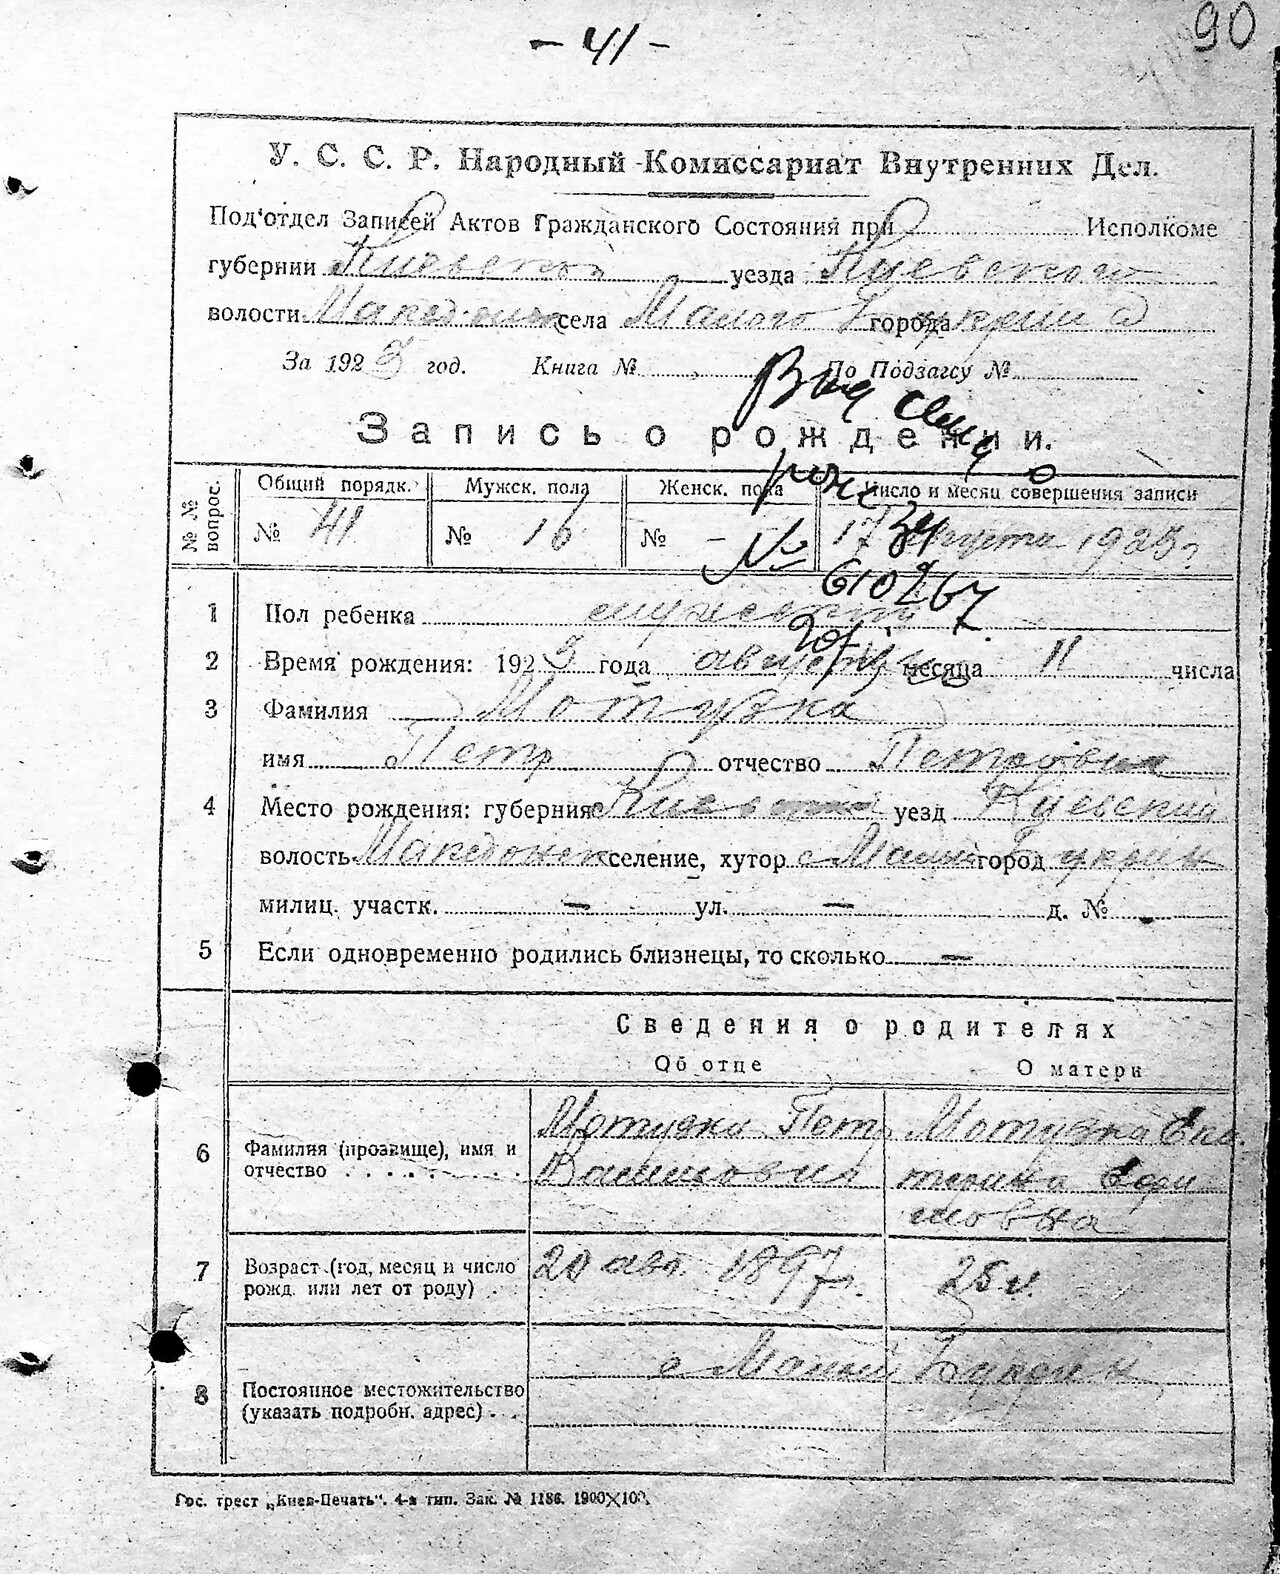 - 41 -
90
У. С. С. Р. Народный Комиссариат Внутренних Дел.
Под'отдел Записей Актов Гражданского Состояния при Исполкоме
губернии Киевской уезда Киевского
волости Македонск села Малого Букрина города
За 1923 год. Книга № По Подзагсу №
Запись о рождении.
№ № вопрос.
Общий порядк. Мужск. пола Женск. пола Число и месяц совершения записи
№ 41 № 16 № - 17 августа 1923 г.
№ 610267
1 Пол ребенка мужской
2 Время рождения: 1923 года августа месяца 11 числа
3 Фамилия Мотузка
имя Петр отчество Петрович
4 Место рождения: губерния Киевская уезд Киевский
волость Македонск селение, хутор с Малый Букрин город
милиц. участк. — ул. — д. № -
5 Если одновременно родились близнецы, то сколько —
Сведения о родителях
Об отце О матери
6 Фамилия (прозвище), имя и отчество . . . . . . . . .
Мотузка Петр Васильович
Мотузка Екатерина Ефимовна
7 Возраст (год, месяц и число рожд. или лет от роду) . .
20 авг. 1897 г.
25 л.
8 Постоянное местожительство (указать подробн. адрес) . . .
с Малый Букрин
Гос. трест „Киев-Печать". 4-я тип. Зак. № 1186. 1900×100.